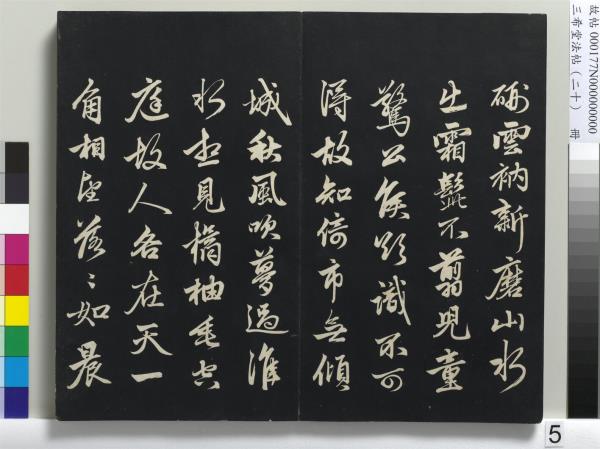 硎雲衲新磨山水
出霜髭不翦兒童
驚公侯欲識不可
得故知倚市無傾
城秋風吹夢過淮
水想見橘柚垂空
庭故人各在天一
角相望落〻如晨
故帖 000177N000000000
三希堂法帖(二十) 冊
5